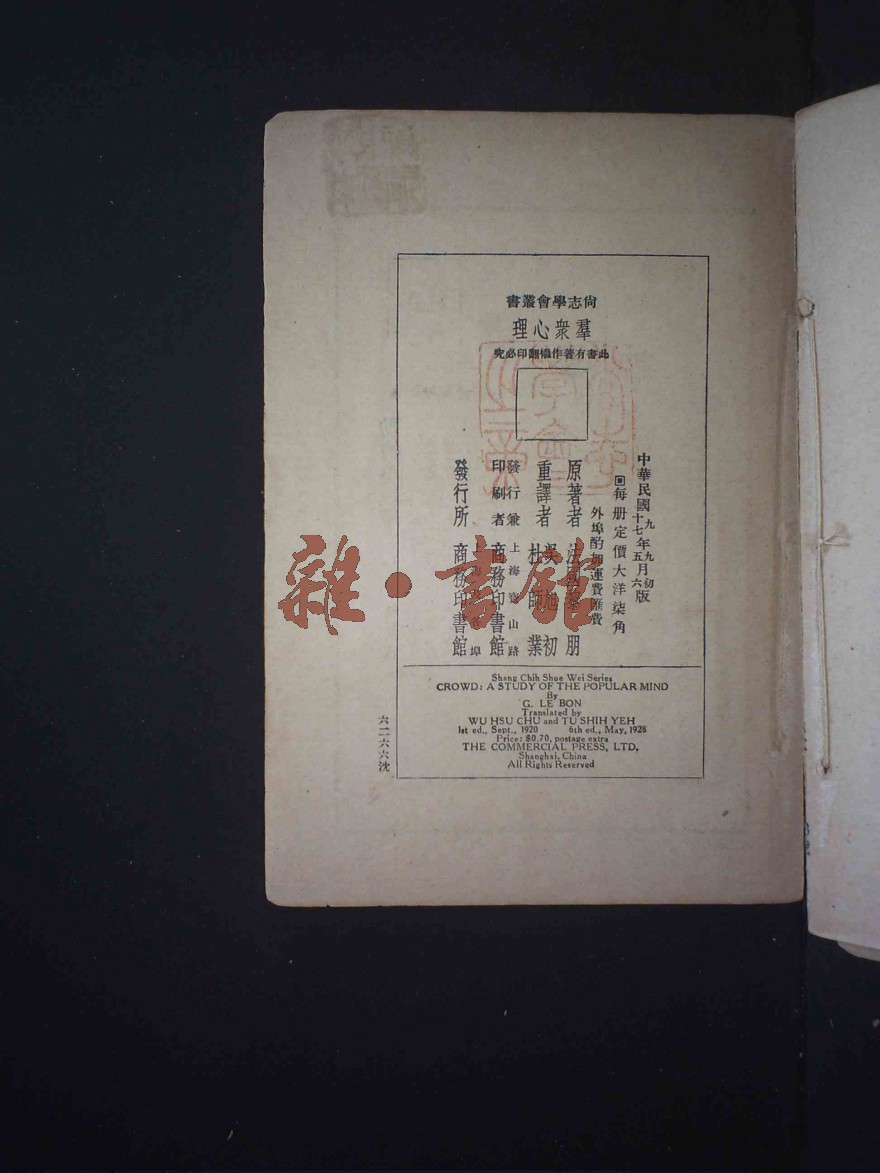 尚志學會叢書
羣衆心理
此書有著作權翻印必究
中華民國
九年九月初
十七年五月六
版
每册定價大洋柒角
外埠酌加運費匯費
原著者 法國黎朋
重譯者 吳旭初
杜師業
發行兼
印刷者 上海寶山路
商務印書館
發行所 上海及各埠
商務印書館
Shang Chih Shue Wei Series
CROWD: A STUDY OF THE POPULAR MIND
By
G. LE BON
Translated by
WU HSU CHU and TU SHIH YEH
1st ed., Sept., 1920 6th ed., May, 1928
Price: $0.70, postage extra
THE COMMERCIAL PRESS, LTD.
Shanghai, China
All Rights Reserved
六二六六沈
雜·書館